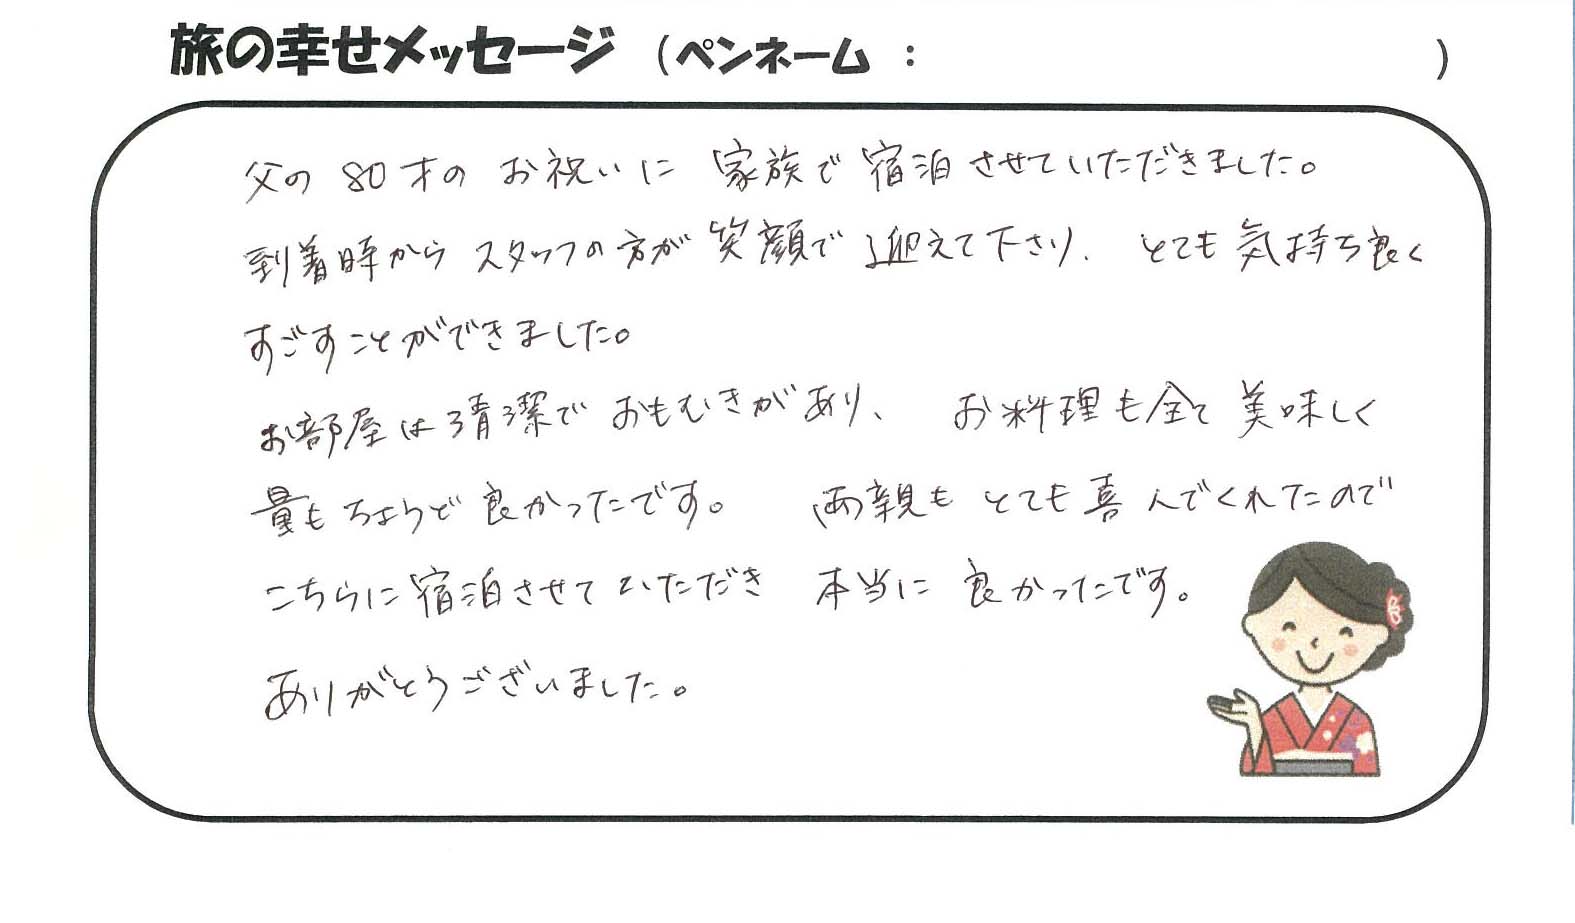 旅の幸せメッセージ （ペンネーム ： ）
父の80才のお祝いに 家族で宿泊させていただきました。
到着時からスタッフの方が笑顔で迎えて下さり、とても気持ち良く
すごすことができました。
お部屋は清潔でおもむきがあり、 お料理も全て美味しく
量もちょうど良かったです。 両親もとても喜んでくれたので
こちらに宿泊させていただき 本当に良かったです。
ありがとうございました。